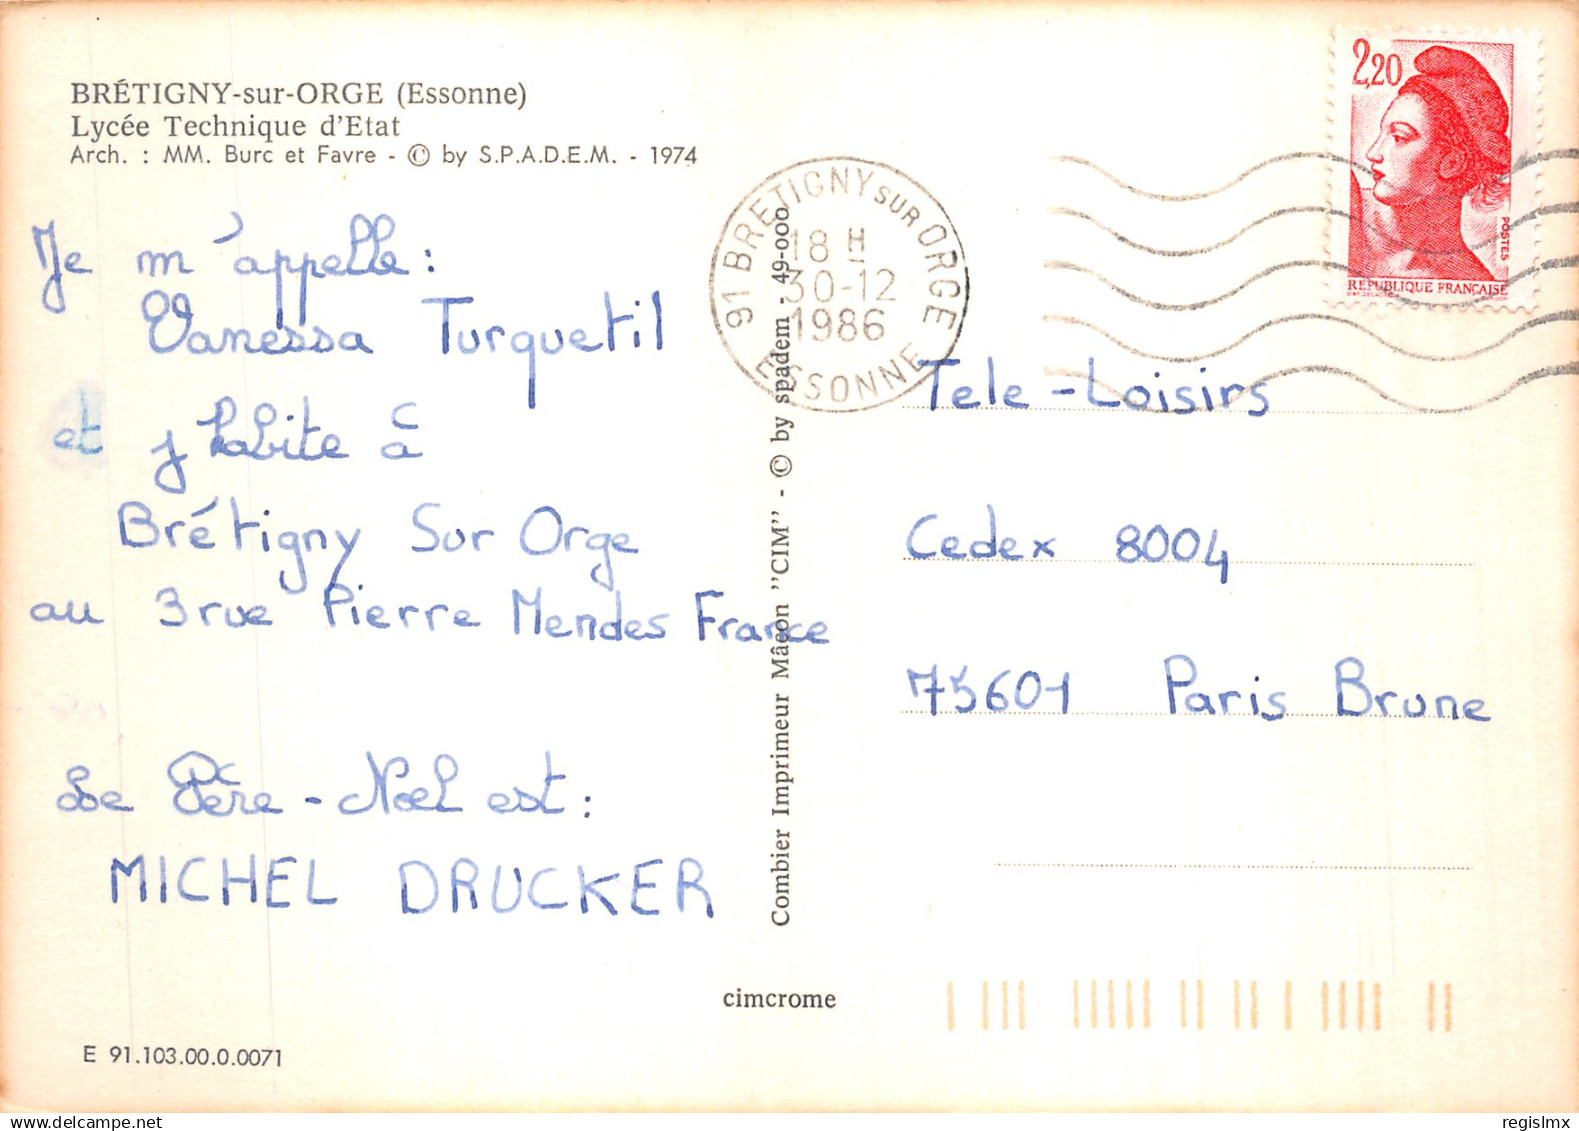 BRÉTIGNY-sur-ORGE (Essonne)
Lycée Technique d'Etat
Arch. : MM. Burc et Favre - © by S.P.A.D.E.M. - 1974
Je m'appelle :
Vanessa Turquetil
et j'habite à
Brétigny Sur Orge
au 3 rue Pierre Mendes France
Le Père-Noël est :
MICHEL DRUCKER
E 91.103.00.0.0071
cimcrome
Combier Imprimeur Mâcon "CIM" - © by spadem - 49-000
91 BRETIGNY SUR ORGE
18 H
30-12
1986
ESSONNE
2,20
POSTES
REPUBLIQUE FRANÇAISE
Tele-Loisirs
Cedex 8004
75601 Paris Brune
regislmx